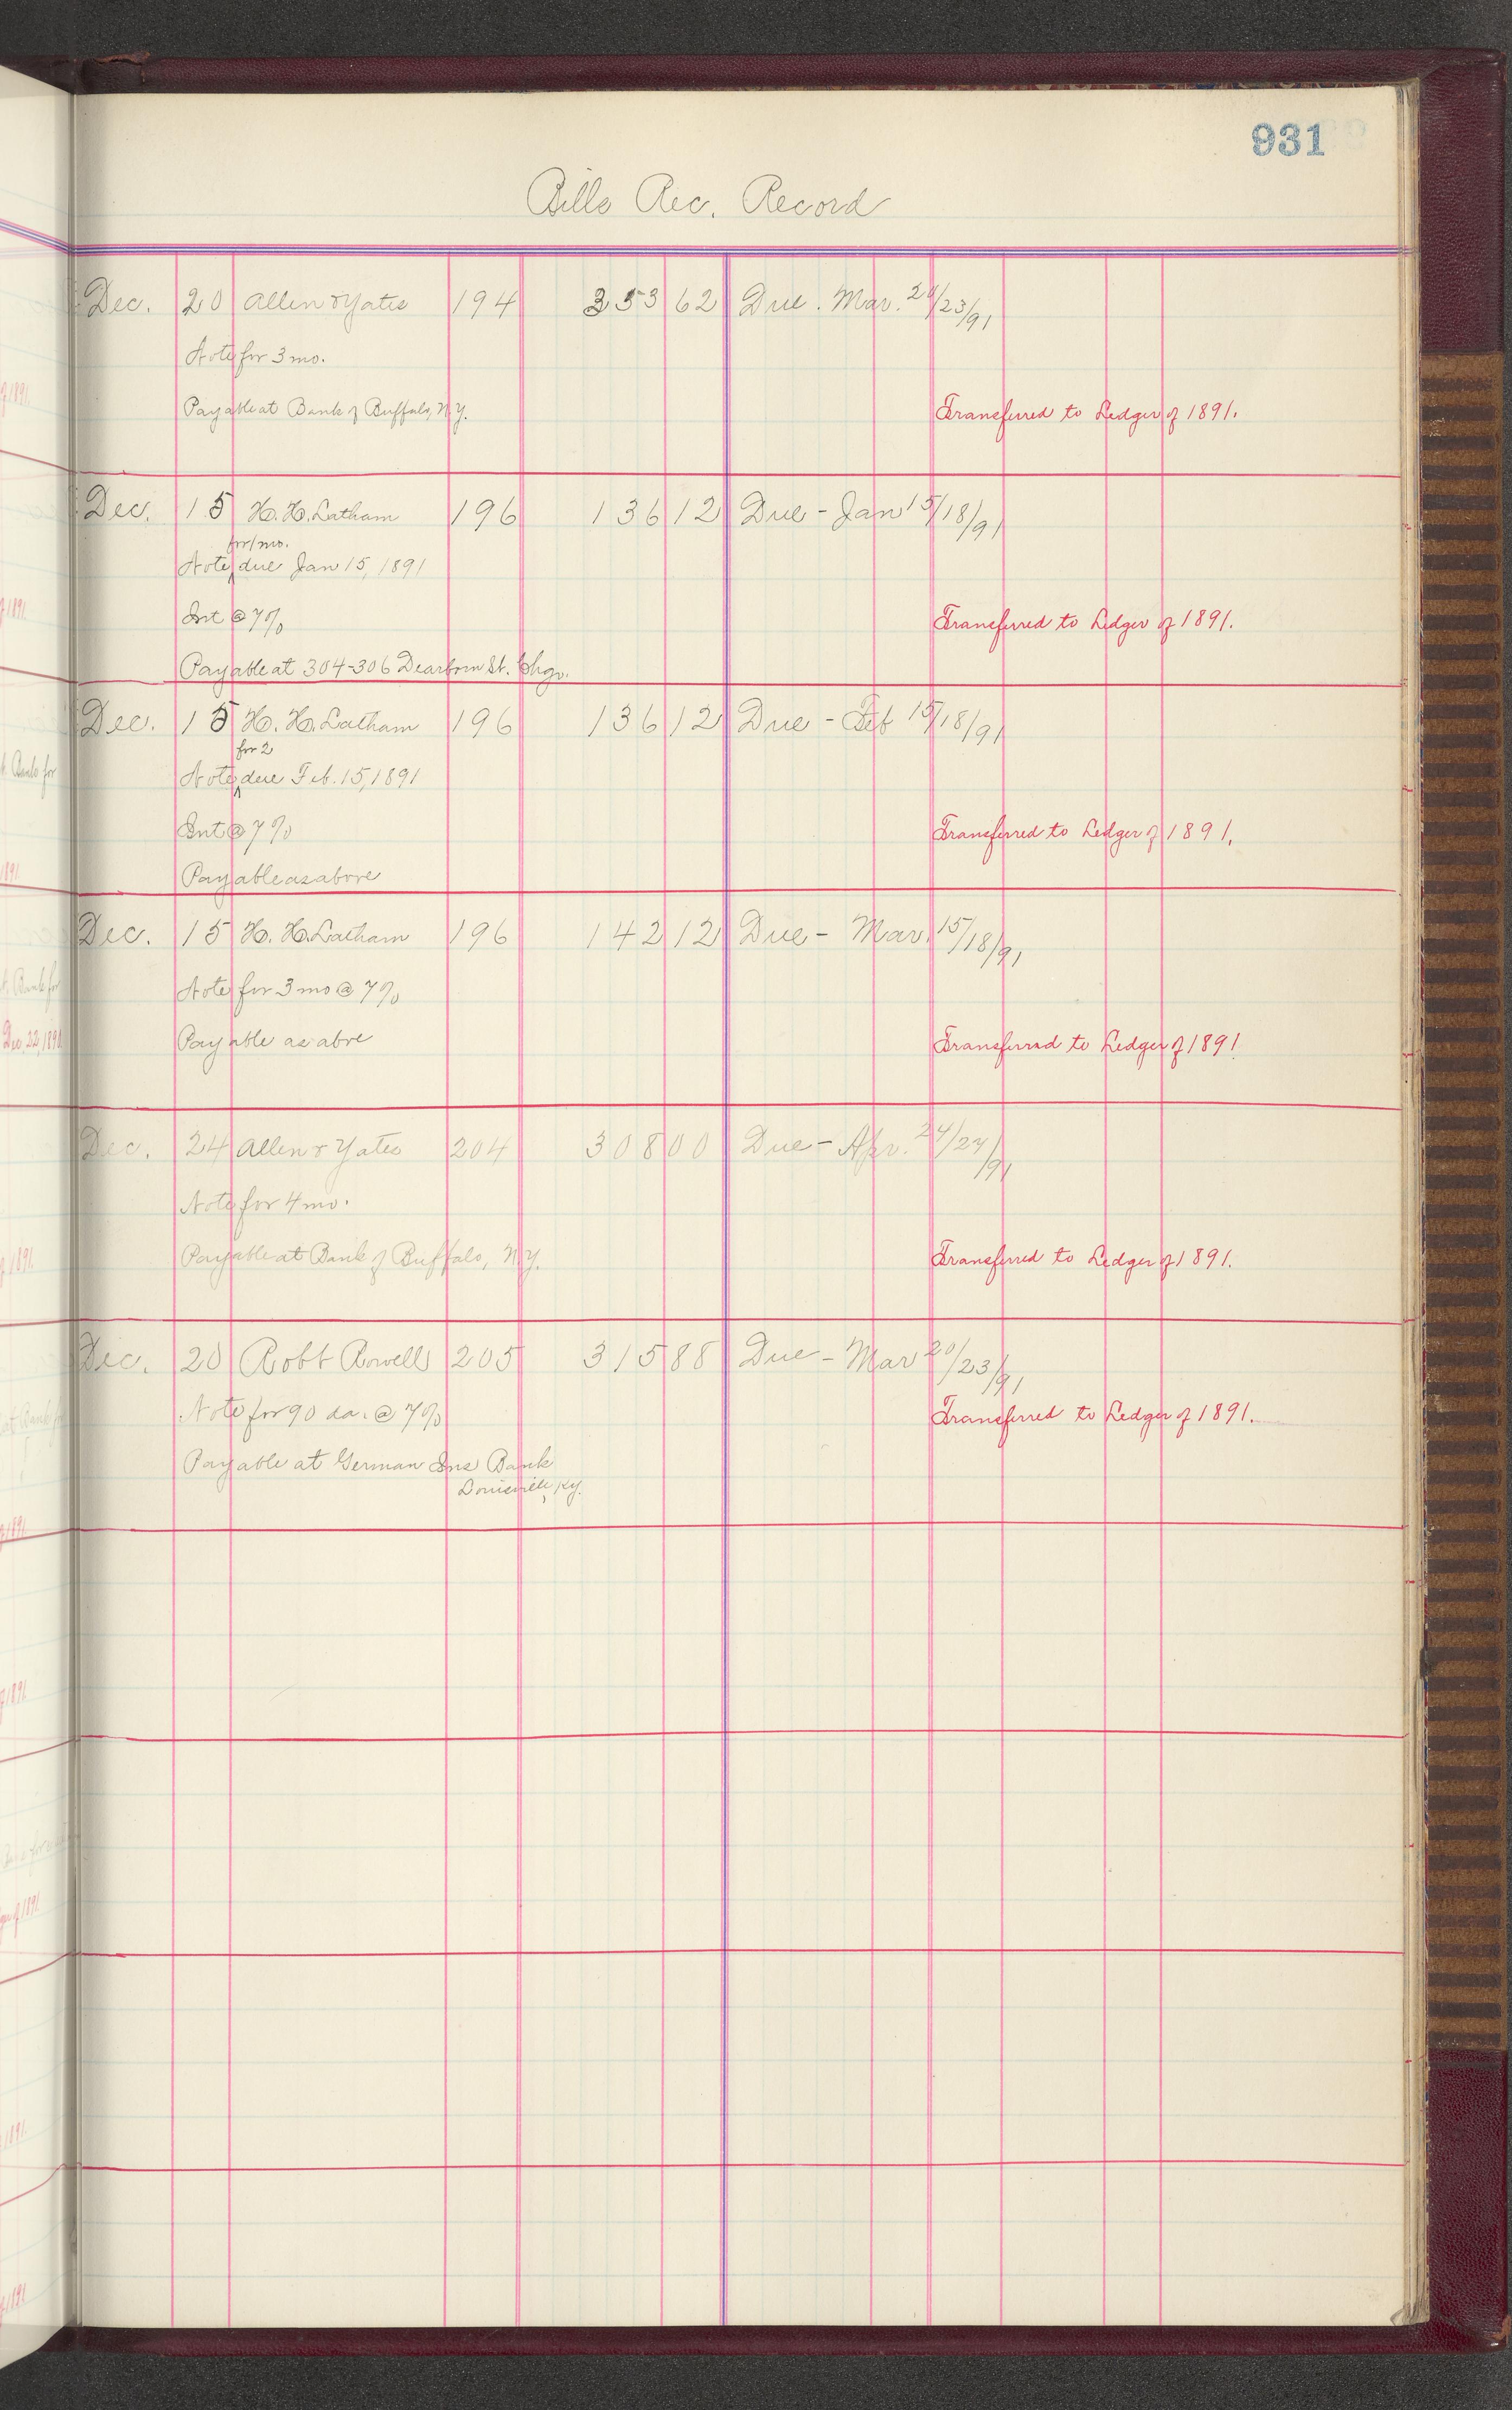 931
Bills Rec. Record
Dec. 20 Allen & Yates 194 353 62 Due. Mar. 20/23/91
Note for 3 mo.
Payable at Bank of Buffalo, N.Y. Transferred to Ledger of 1891.
Dec. 15 H. H. Latham 196 136 12 Due - Jan 15/18/91
for 1 mo.
Note due Jan 15, 1891
Int @ 7%
Transferred to Ledger of 1891.
Payable at 304-306 Dearborn St. Chgo.
Dec. 15 H. H. Latham 196 136 12 Due - Feb 15/18/91
for 2
Note due Feb. 15, 1891
Int @ 7% Transferred to Ledger of 1891.
Payable as above
Dec. 15 H. H. Latham 196 142 12 Due - Mar. 15/18/91
Note for 3 mo @ 7%
Payable as abve Transferred to Ledger of 1891
Dec. 24 Allen & Yates 204 308 00 Due - Apr. 24/27/91
Note for 4 mo.
Payable at Bank of Buffalo, N.Y. Transferred to Ledger of 1891.
Dec. 20 Robt Rowell 205 315 88 Due - Mar 20/23/91
Note for 90 da. @ 7% Transferred to Ledger of 1891.
Payable at German Ins Bank
Louisville, Ky.